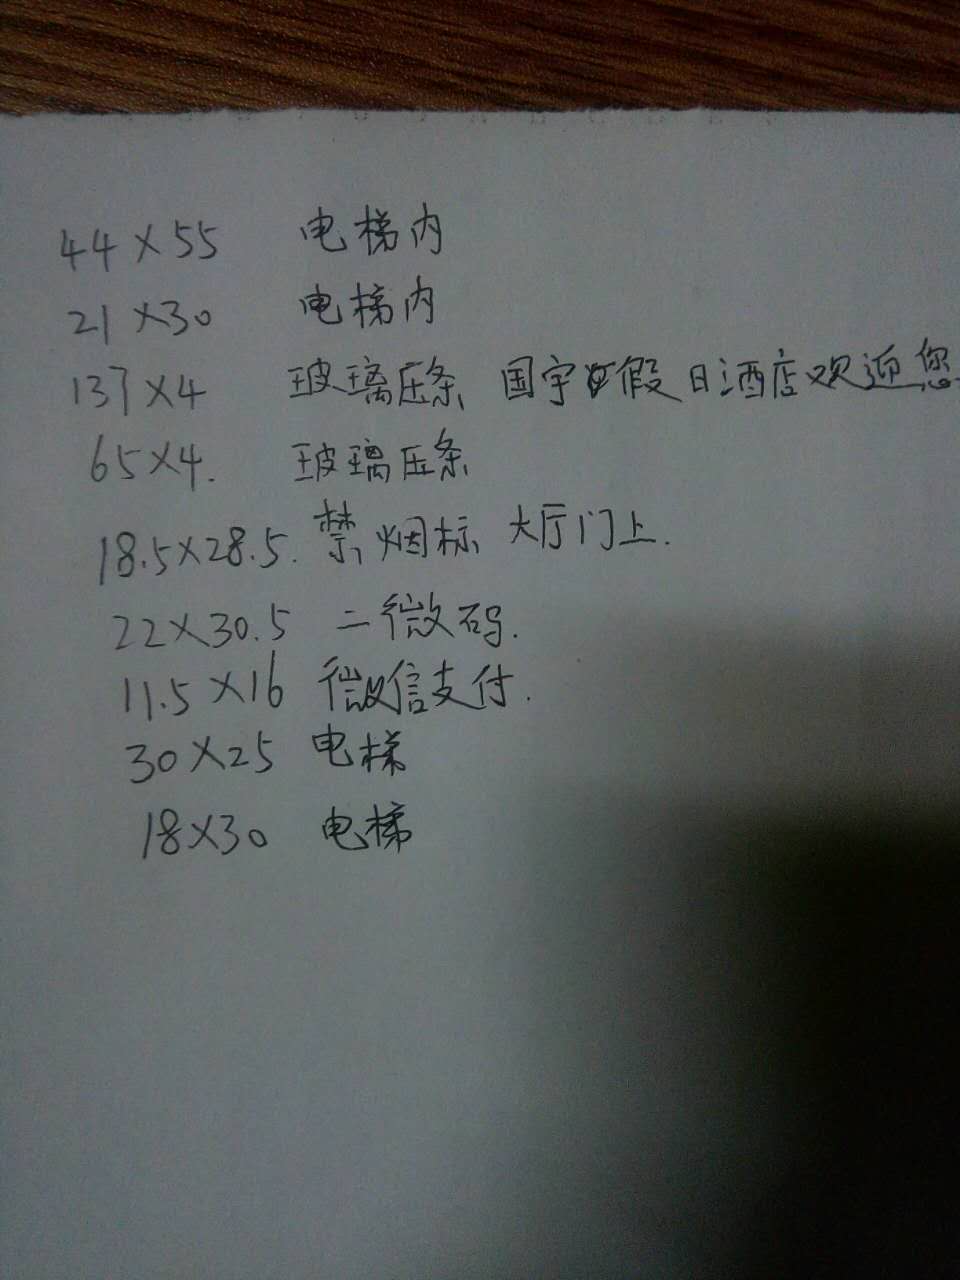 44×55 电梯内
21×30 电梯内
137×4 玻璃压条 国宇假日酒店欢迎您
65×4. 玻璃压条
18.5×28.5. 禁烟标 大厅门上.
22×30.5 二微码.
11.5×16 微信支付.
30×25 电梯
18×30 电梯